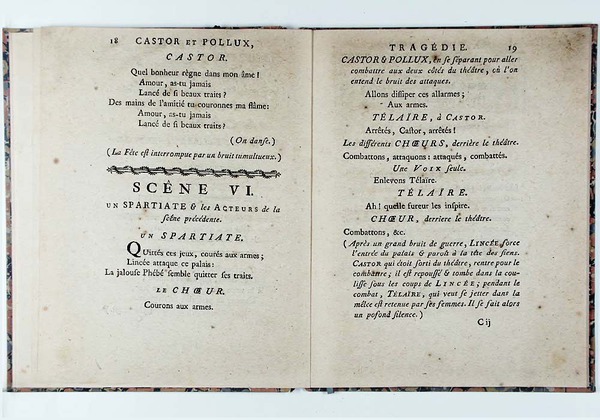 18 CASTOR ET POLLUX,
CASTOR.
Quel bonheur règne dans mon âme !
Amour, as-tu jamais
Lancé de si beaux traits ?
Des mains de l'amitié tu couronnes ma flâme :
Amour, as-tu jamais
Lancé de si beaux traits ?
(On danse.)
(La Fête est interrompue par un bruit tumultueux.)
SCÈNE VI.
UN SPARTIATE & les ACTEURS de la
scêne précédente.
UN SPARTIATE.
Quittés ces jeux, courés aux armes ;
Lincée attaque ce palais :
La jalouse Phébé semble quitter ses traits.
LE CHŒUR.
Courons aux armes.
TRAGÉDIE. 19
CASTOR & POLLUX, en se séparant pour aller
combattre aux deux côtés du théâtre, où l'on
entend le bruit des attaques.
Allons dissiper ces allarmes ;
Aux armes.
TÉLAIRE, à CASTOR.
Arrêtés, Castor, arrêtés !
Les différents CHŒURS, derrière le théâtre.
Combattons, attaquons : attaqués, combattés.
Une VOIX seule.
Enlevons Télaïre.
TÉLAIRE.
Ah ! quelle fureur les inspire.
CHŒUR, derriere le théâtre.
Combattons, &c.
(Après un grand bruit de guerre, LINCÉE force
l'entrée du palais & paroît à la tête des siens.
CASTOR qui étoit sorti du théâtre, rentre pour le
combattre ; il est repoussé & tombe dans la cou-
lisse sous les coups de LINCÉE ; pendant le
combat, TÉLAIRE, qui veut se jetter dans la
mêlée est retenue par ses femmes. Il se fait alors
un pofond silence.)
Cij